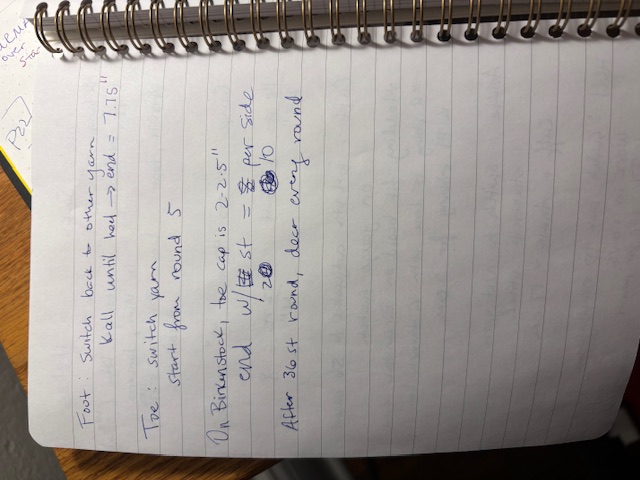 Foot: Switch back to other yarn
K all until heel → end = 7.75"
Toe: switch yarn
start from round 5
On Birkenstock, toe cap is 2-2.5"
end w/ st = per side
20 10
After 36 st round, decr every round